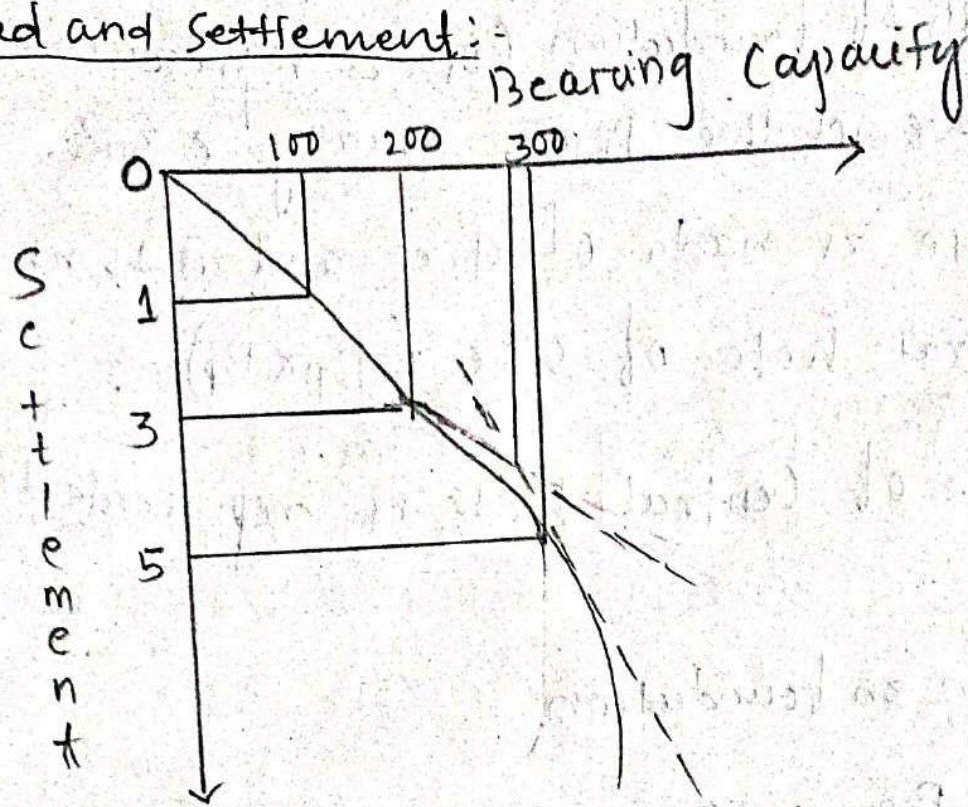 ed and Settlement:-
Bearing Capacity
100 200 300
0
1
3
5
Settlement